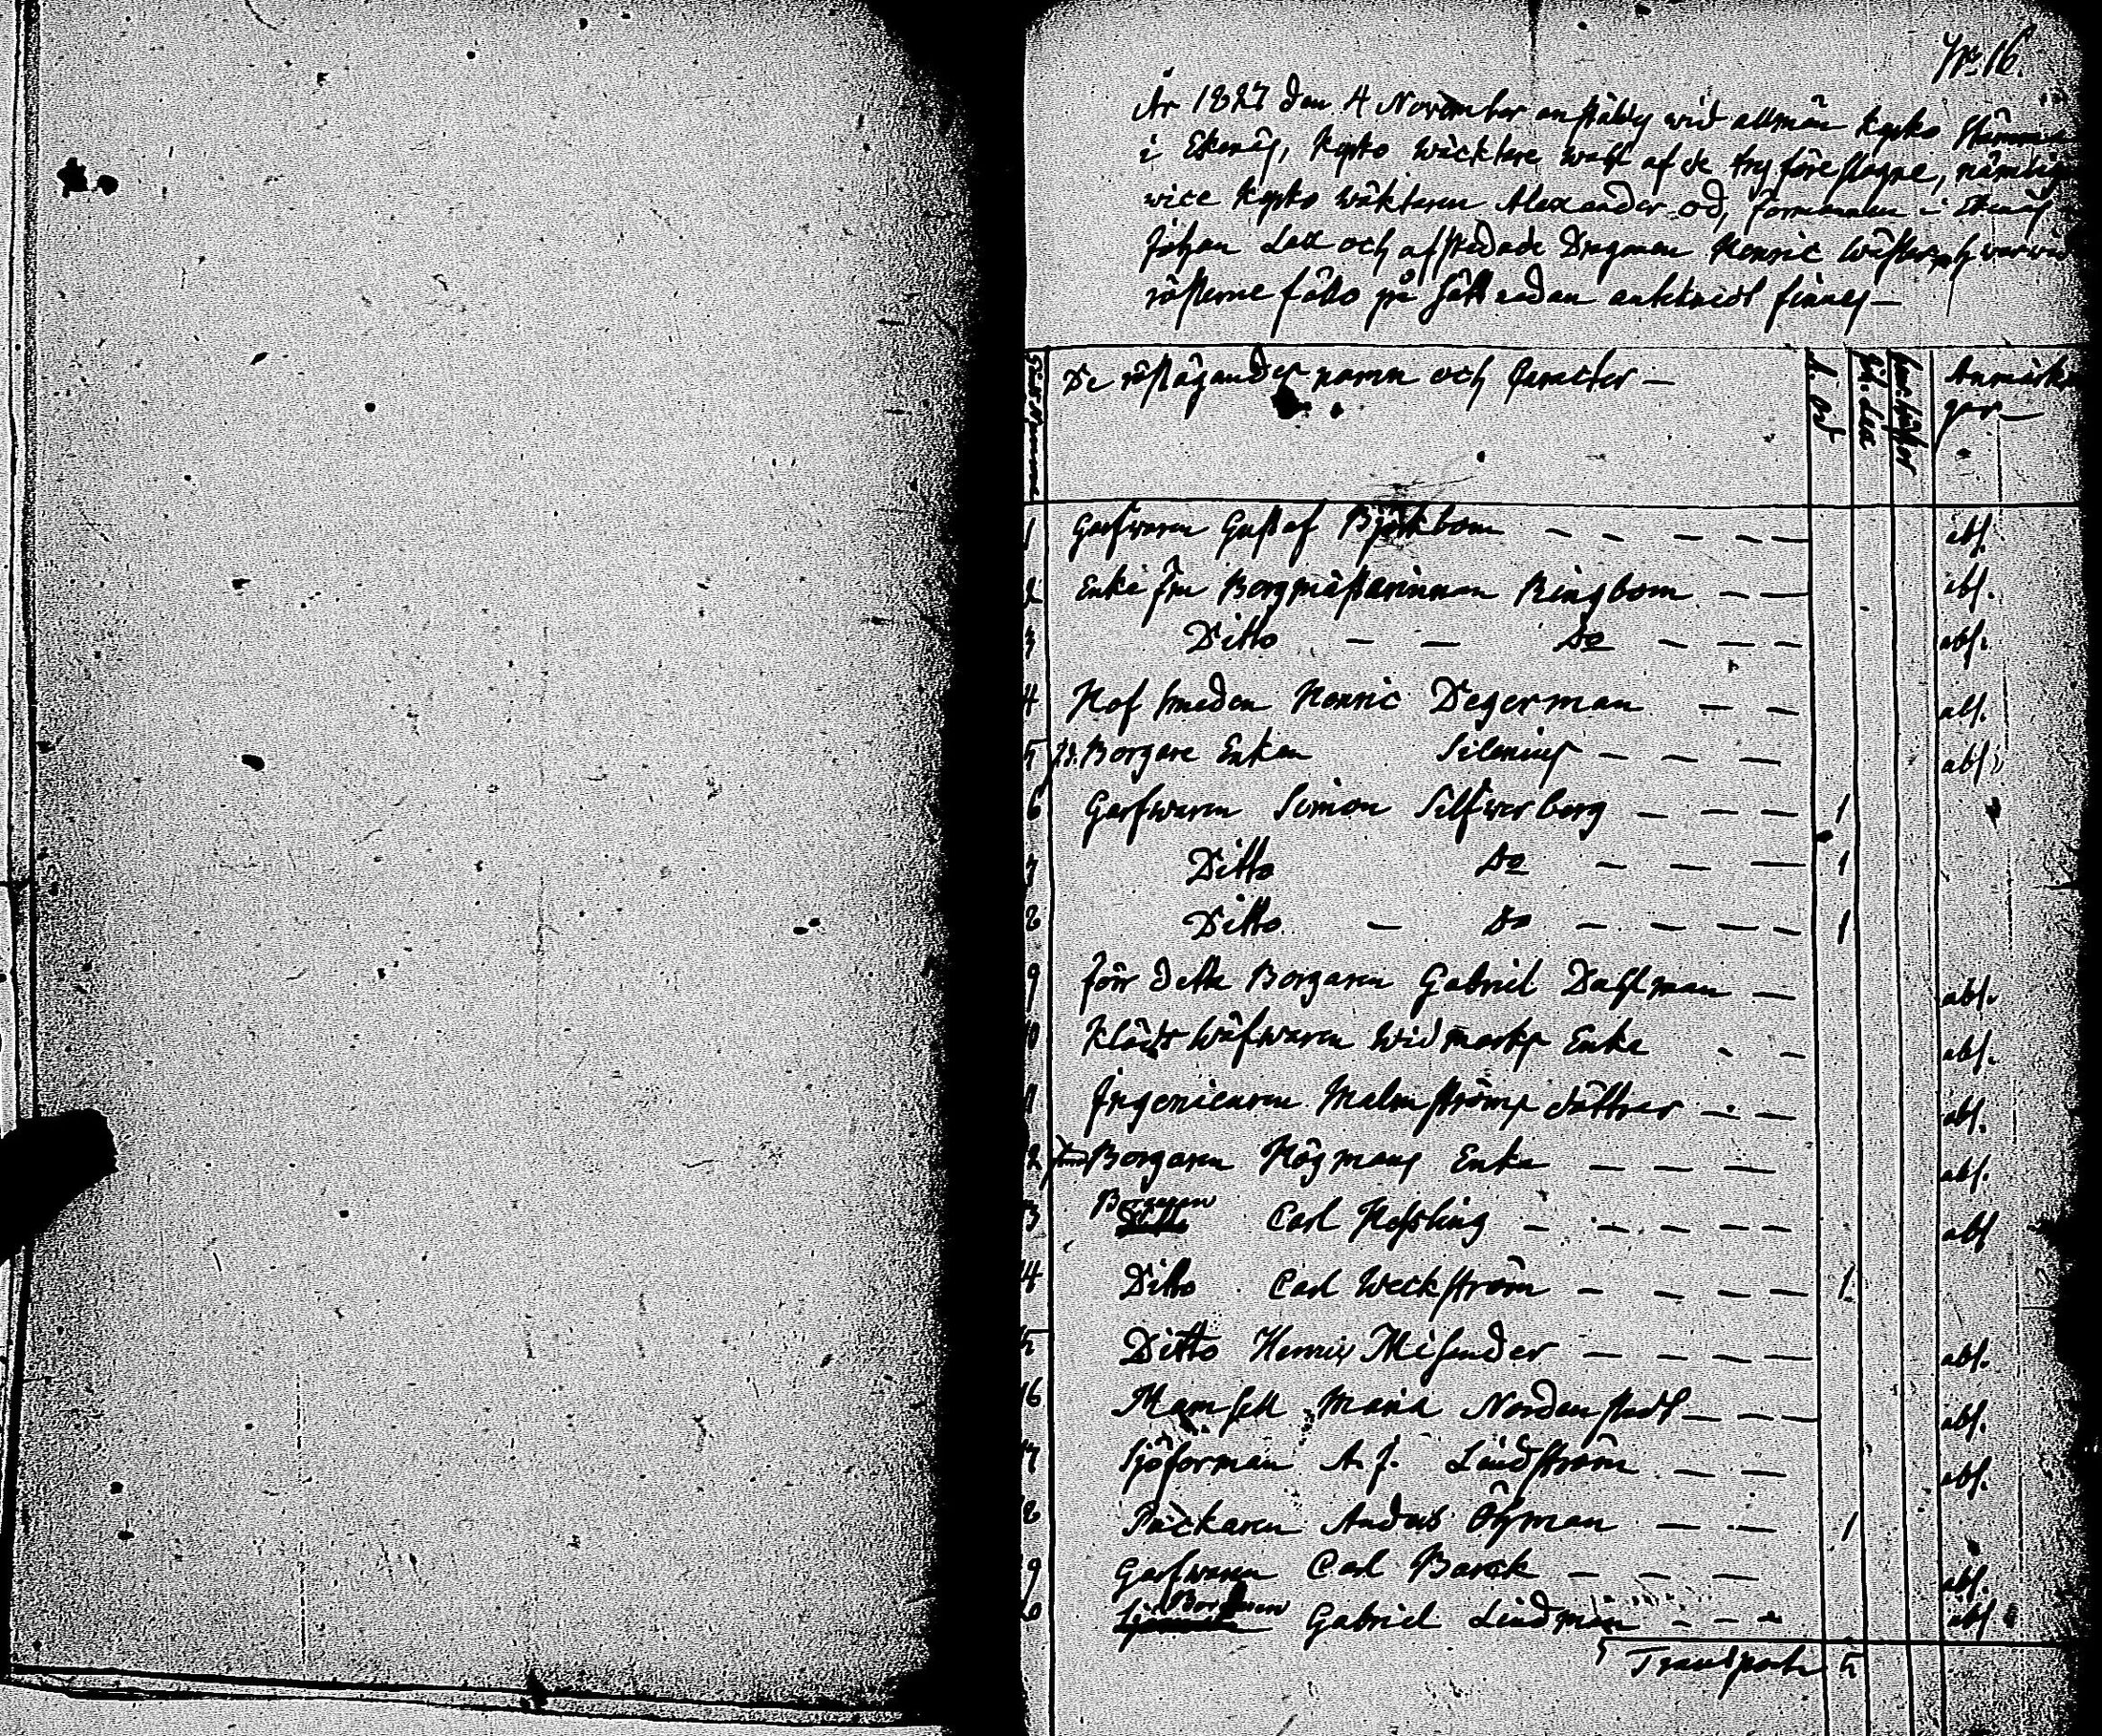 No 16.
År 1827 den 4 November anstäldes wid allmän Kyrko Stämma
i Ekenäs, Kyrko wäcktare wahl af de try föreslagne, nämligen
vice Kyrko wäktaren Alexander Öd, formannen i Ekenäs
Johan Lax och afskedade Dragonen Henric Wäster, hwarwid
rösterne föllo på sätt nedan anteknadt finnes —
De röstägandes namn och Caracter —
A. Öd
Joh. Lax
Anmärknin
gar —
1 Garfwaren Gustaf Björkbom — — — — — abs.
2 Enke fru Borgmästarinnan Ringbom — — abs.
3 Ditto — — Do — — — abs.
4 Hof smeden Henric Degerman — — abs.
5 Borgare Enkan Silenius — — — abs.
6 Garfwaren Simon Silfwerberg — — — 1
7 Ditto Do — — — 1
8 Ditto — Do — — — — 1
9 förr detta Borgaren Gabriel Dahlman — abs.
10 Klädswäfwaren Widmarks Enka - — abs.
11 Ingenieuren Malmströms döttrar — — abs.
12 Borgaren Högmans Enka — — — abs.
13 Borgaren Ditto Carl Hessling — — — — — abs
14 Ditto Carl Weckström — — — — 1
15 Ditto Henric Misender — — — — abs.
16 Mamsell Maria Nordenstedt — — — abs.
17 Sjöforman A. J. Lindström — — abs.
18 Packaren Anders Öhman — — 1
19 Garfwaren Carl Barck — — — abs.
20 Borgaren Gabriel Lindman — — — abs
Transport 5